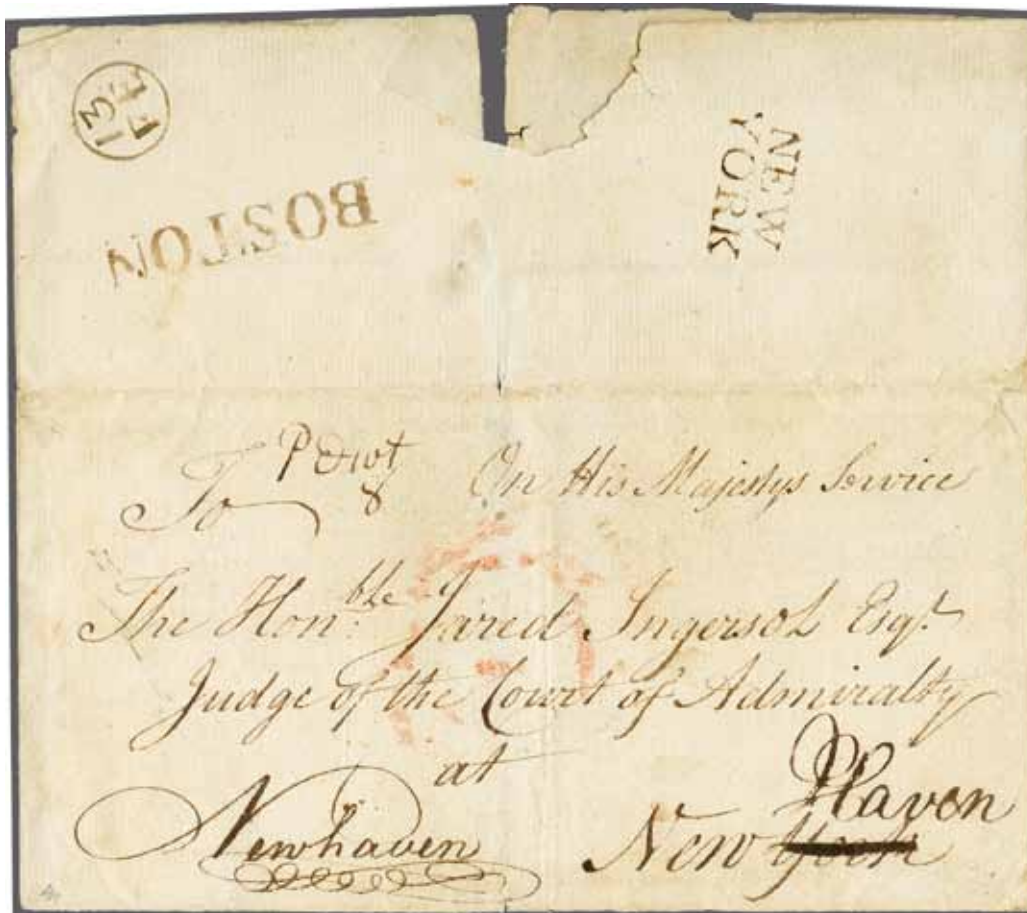 BOSTON
NEW
YORK
To dwt 8 On His Majestys Service
The Honble Jared Ingersol Esqr.
Judge of the Court of Admiralty
at
Newhaven New York Haven